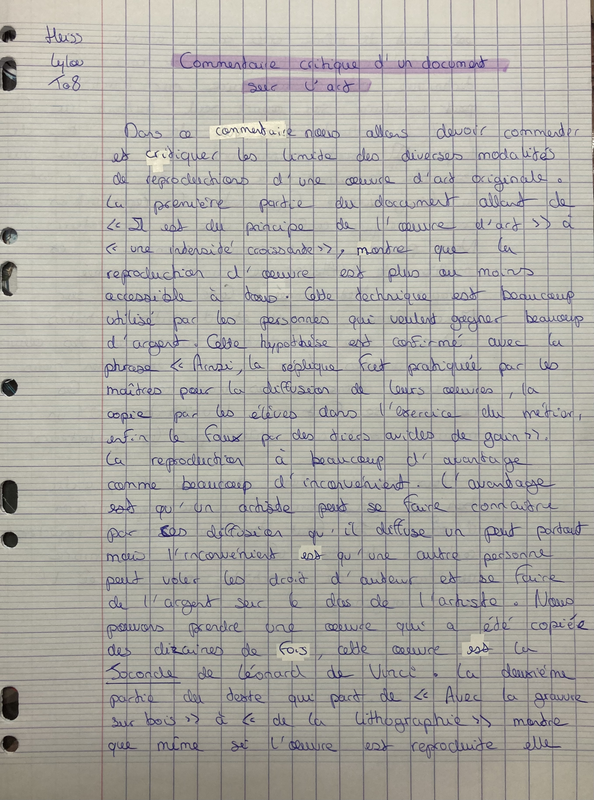 Heiss
Lylou
TG8
Commentaire critique d'un document
sur l'art
Dans ce commentaire nous allons devoir commenter
et critiquer les limite des diverses modalités
de reproductions d'une œuvre d'art originale.
La première partie du document allant de
« Il est du principe de l'œuvre d'art » à
« une intensité croissante », montre que la
reproduction d'œuvre est plus ou moins
accessible à tous. Cette technique est beaucoup
utilisé par les personnes qui veulent gagner beaucoup
d'argent. Cette hypothèse est confirmé avec la
phrase « Ainsi, la réplique fut pratiquée par les
maîtres pour la diffusion de leurs œuvres, la
copie par les élèves dans l'exercice du métier,
enfin le faux par des tiers avides de gain ».
La reproduction à beaucoup d'avantage
comme beaucoup d'inconvenient. L'avantage
est qu'un artiste peut se faire connaitre
par ses diffusion qu'il diffuse un peut partout
mais l'inconvenient est qu'une autre personne
peut voler les droit d'auteur et se faire
de l'argent sur le dos de l'artiste. Nous
pouvons prendre une œuvre qui a été copiée
des dizaines de fois, cette œuvre est la
Joconde de Léonard de Vinci. La deuxième
partie du texte qui part de « Avec la gravure
sur bois » à « de la lithographie » montre
que même si l'œuvre est reproduite elle